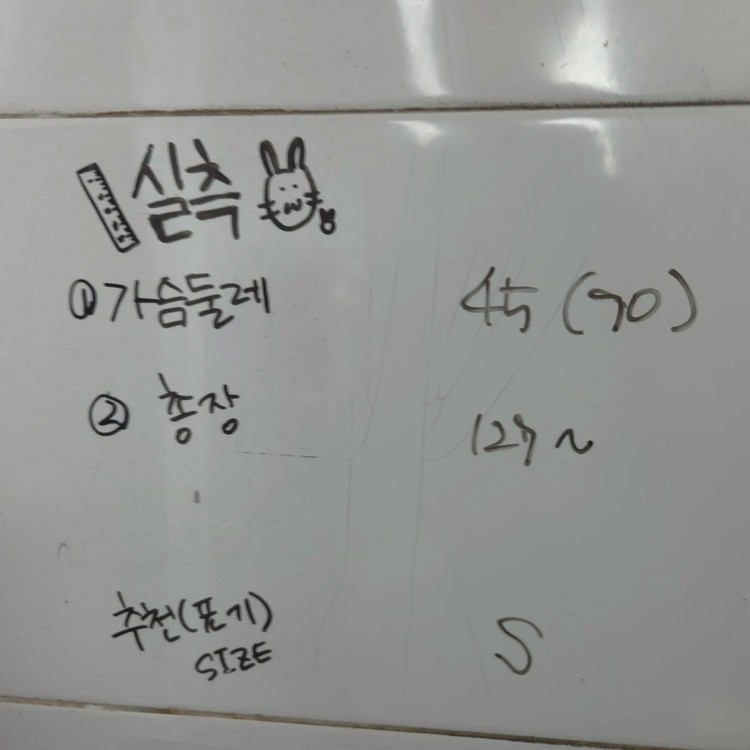 실측
① 가슴둘레 45 (90)
② 총장
추천(표기) S
SIZE